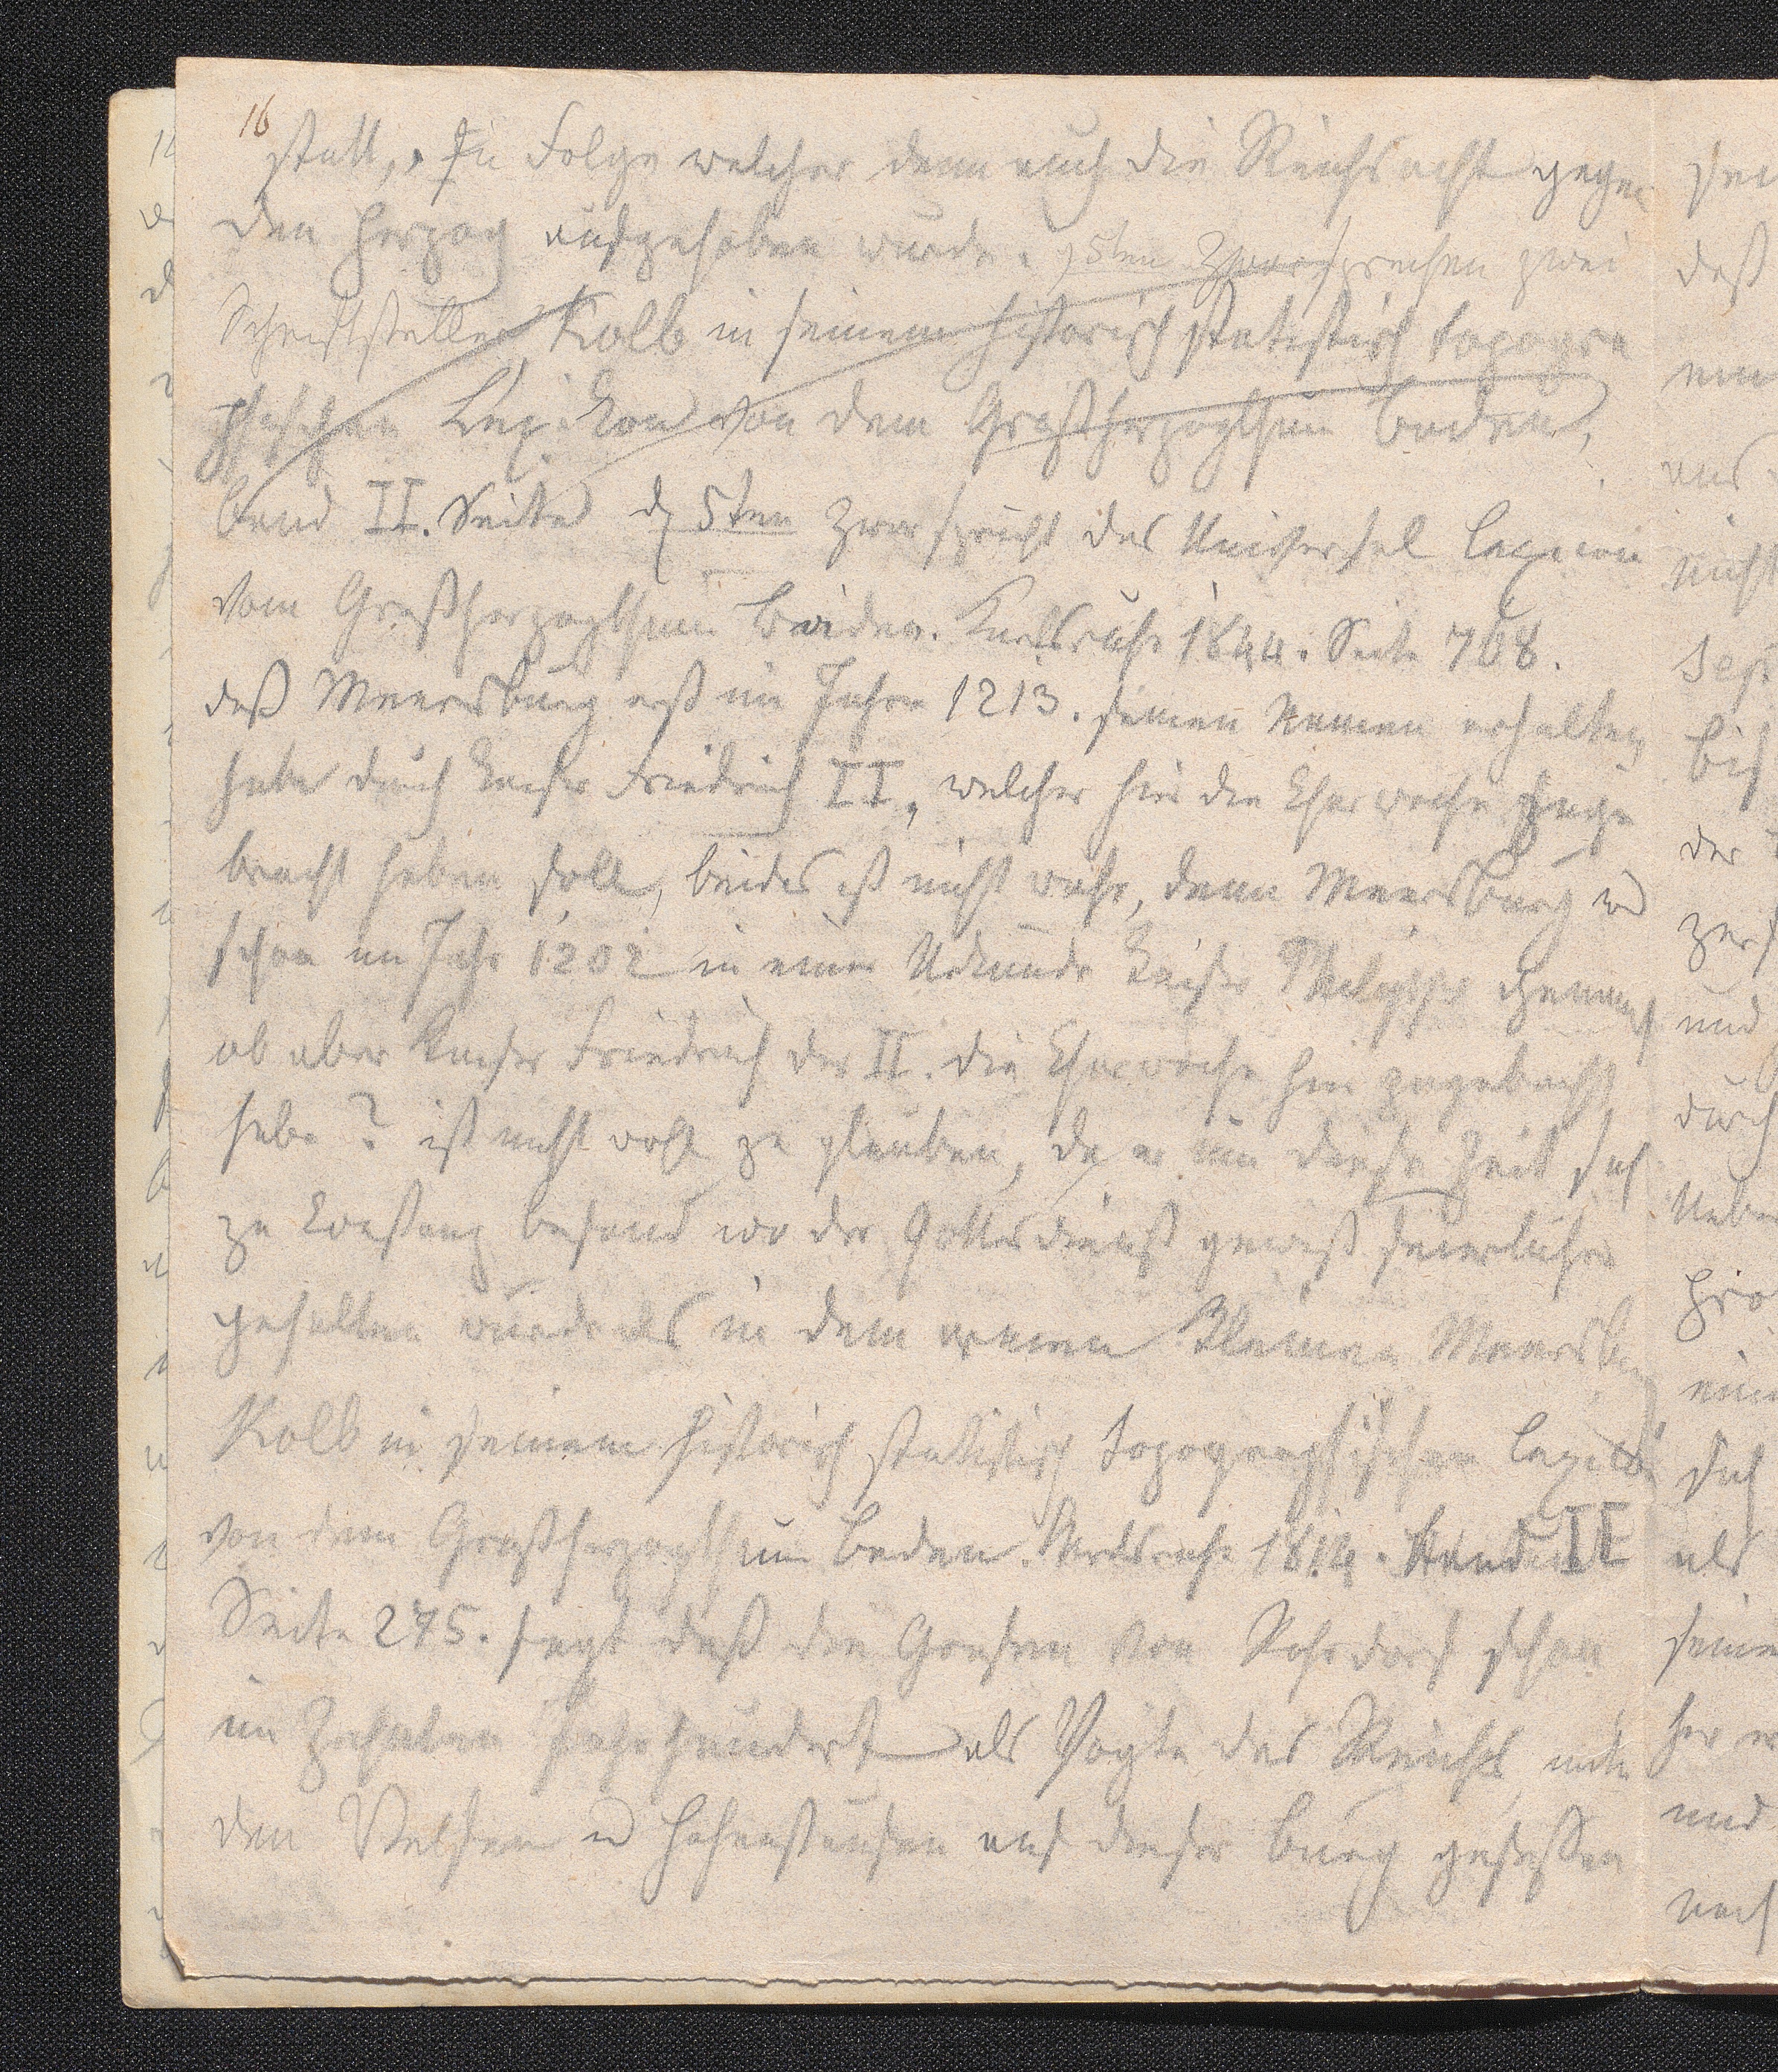 16
statt, In Folge welcher denn auch die Reichsacht gegen
den Herzog aufgehoben wurde. 5ten Zwar sprechen zwei
Schriftsteller Kolb in seinem historisch statistisch topogra
phischen Lexikon von dem Großherzogthum Baden,
Band II. Seite 5ten Zwar spricht das Universal Lexicon
vom Großherzogthum Baden. Karlsruhe 1844. Seite 768.
daß Meersburg erst im Jahre 1213. seinen Namen erhalten
habe durch Kaiser Friedrich II, welcher hier die Charwoche zuge
bracht haben soll, beides ist nicht wahr, denn Meersburg wird
schon im Jahr 1202 in einer Urkunde Kaiser Philipps genannt
ob aber Kaiser Friedrich der II. die Charwoche hier zugebracht
habe? ist nicht wohl zu glauben, da er um diese Zeit sich
zu Constanz befand wo der Gottesdienst gewiß feierlicher
gehalten wurde als in dem kleinen Meersburg
Kolb in seinem historisch statistisch topographischen Lexicon
von dem Großherzogthum Baden. Karlsruhe 1814. Band II
Seite 275. sagt daß die Grafen von Rohrdorf schon
im Zehnten Jahrhundert als Vögte des Reichs, unter
den Welfen u Hohenstaufen auf dieser Burg gesessen